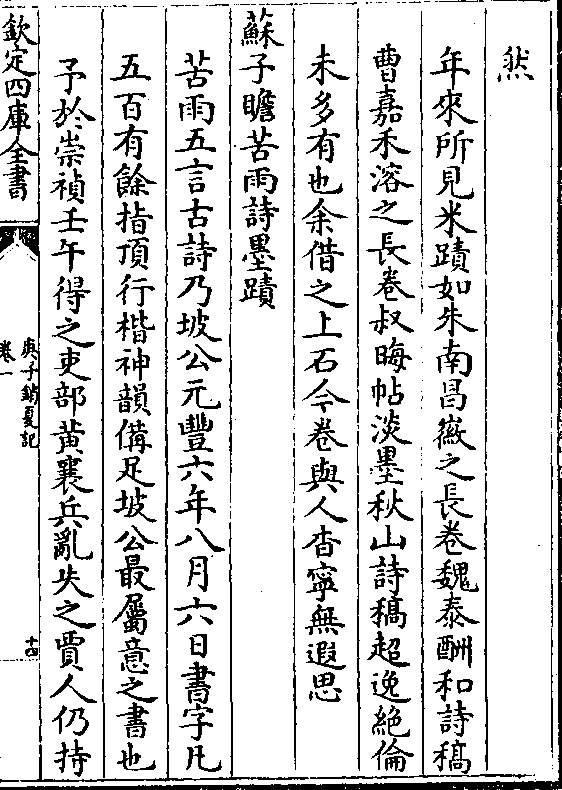 然
年來所見米蹟如朱南昌徽之長卷魏泰酬和詩稿
曹嘉禾溶之長卷叔晦帖淡墨秋山詩稿超逸絶倫
未多有也余借之上石今卷與人杳寧無遐思
蘇子瞻苦雨詩墨蹟
苦雨五言古詩乃坡公元豐六年八月六日書字凡
五百有餘指頂行楷神韻備足坡公最屬意之書也
予於崇禎壬午得之吏部黄襄兵亂失之賈人仍持
欽定四庫全書
庚子銷夏記
卷一
十四